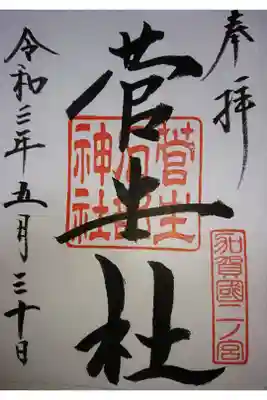 奉拝
加賀國二ノ宮
菅生社
菅生石部神社
令和三年五月三十日